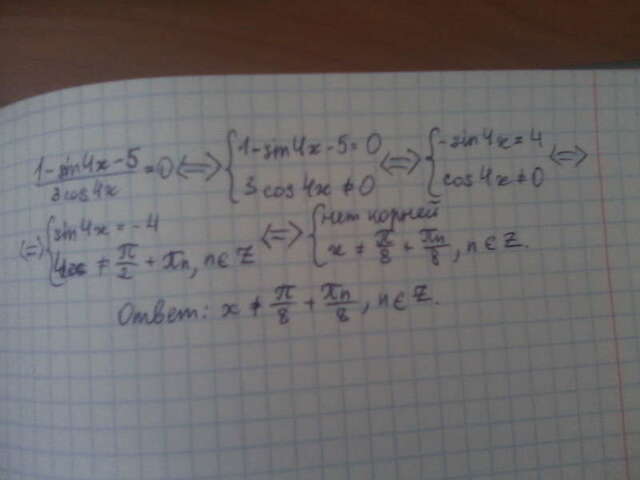 (1-sin4x-5)/(3cos4x) =0 <=> { 1-sin4x-5=0 ; 3cos4x≠0 <=> { -sin4x=4 ; cos4x≠0 <=>
<=> { sin4x=-4 ; ≠ π/2 + πn, n∈Z <=> { нет корней ; x ≠ π/8 + πn/8, n∈Z.
Ответ: x ≠ π/8 + πn/8, n∈Z.